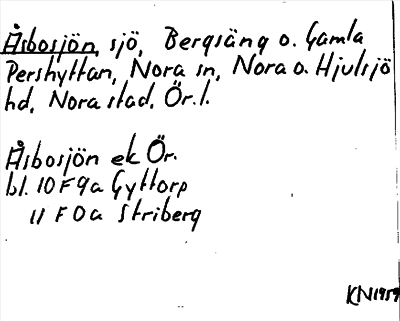 Åsbosjön, sjö, Bergsäng o. Gamla
Pershyttan, Nora sn, Nora o. Hjulsjö
hd, Nora stad. Ör. l.
Åsbosjön ek Ör.
bl. 10F9a Gyttorp
11 F 0a Striberg
KN1959